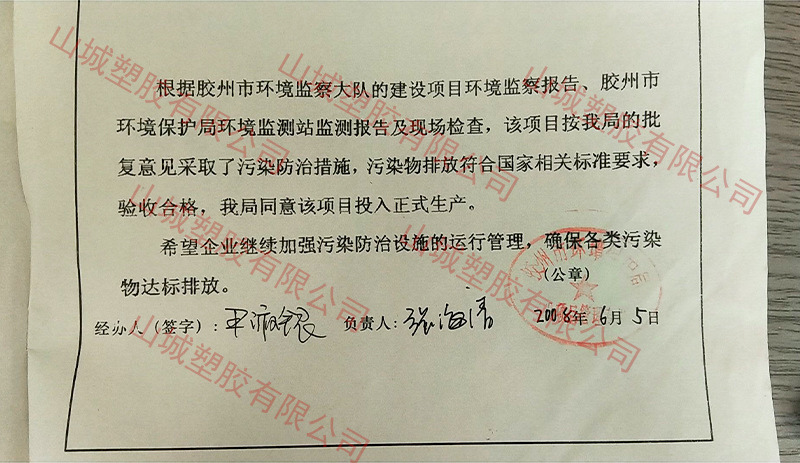 根据胶州市环境监察大队的建设项目环境监察报告、胶州市
环境保护局环境监测站监测报告及现场检查，该项目按我局的批
复意见采取了污染防治措施，污染物排放符合国家相关标准要求，
验收合格，我局同意该项目投入正式生产。
希望企业继续加强污染防治设施的运行管理，确保各类污染
物达标排放。
（公章）
经办人（签字）：
负责人：张海清
2008年6月5日
胶州市环境
山城塑胶有限公司
山城塑胶有限公司
山城塑胶有限公司
山城塑胶有限公司
山城塑胶有限公司
山城塑胶有限公司